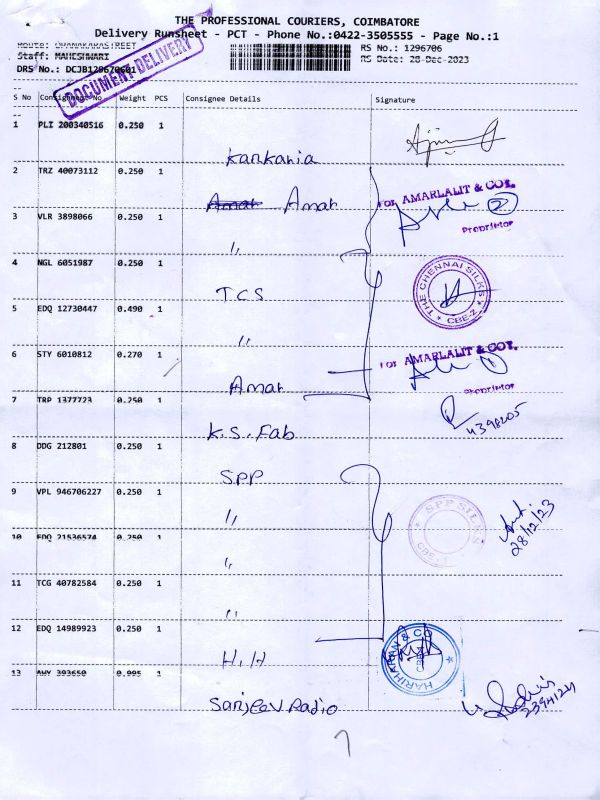 THE PROFESSIONAL COURIERS, COIMBATORE
Delivery Runsheet - PCT - Phone No.:0422-3505555 - Page No.:1
RS No.: 1296706
Staff: MAHESHWARI
RS Date: 28-Dec-2023
DRS No.: DCJB129670601
DOCUMENT DELIVERY
S No Consignment No Weight PCS Consignee Details Signature
1 PLI 200340516 0.250 1
Karkania
2 TRZ 40073112 0.250 1
Amar Amar
For AMARLALIT & CO.,
2
Proprietor
3 VLR 3898066 0.250 1
"
4 NGL 6051987 0.250 1
TCS
THE CHENNAI SILKS
CBE-Z
5 EDQ 12730447 0.490 1
"
6 STY 6010812 0.270 1
Amar
For AMARLALIT & CO.,
Proprietor
7 TRP 1377723 0.250 1
K.S. Fab
8 DDG 212801 0.250 1
SPP
9 VPL 946706227 0.250 1
"
SPP SILKS
28/12/23
10 EDQ 21536574 0.250 1
"
11 TCG 40782584 0.250 1
"
12 EDQ 14989923 0.250 1
H.H
HARIHARAN & CO
13 AWY 393650 0.995 1
Sanjeev Radio